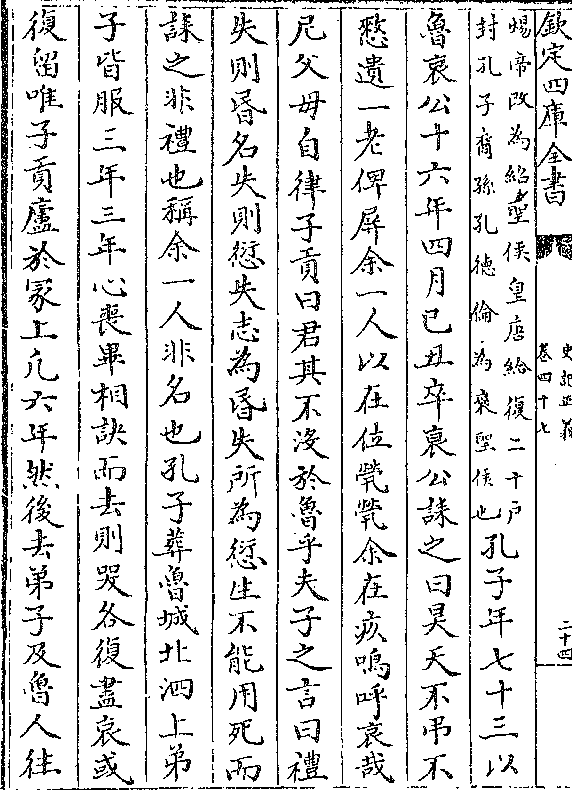 欽定四庫全書
史記正義
卷四十七
二十四
煬帝改為紹聖侯皇唐給復二千戶
封孔子裔孫孔德倫為襃聖侯也
孔子年七十三以
魯哀公十六年四月己丑卒哀公誄之曰昊天不弔不
慭遺一老俾屏余一人以在位煢煢余在疚嗚呼哀哉
尼父毋自律子貢曰君其不沒於魯乎夫子之言曰禮
失則昬名失則愆失志為昬失所為愆生不能用死而
誄之非禮也稱余一人非名也孔子葬魯城北泗上弟
子皆服三年三年心喪畢相訣而去則哭各復盡哀或
復留唯子貢廬於冢上凡六年然後去弟子及魯人往